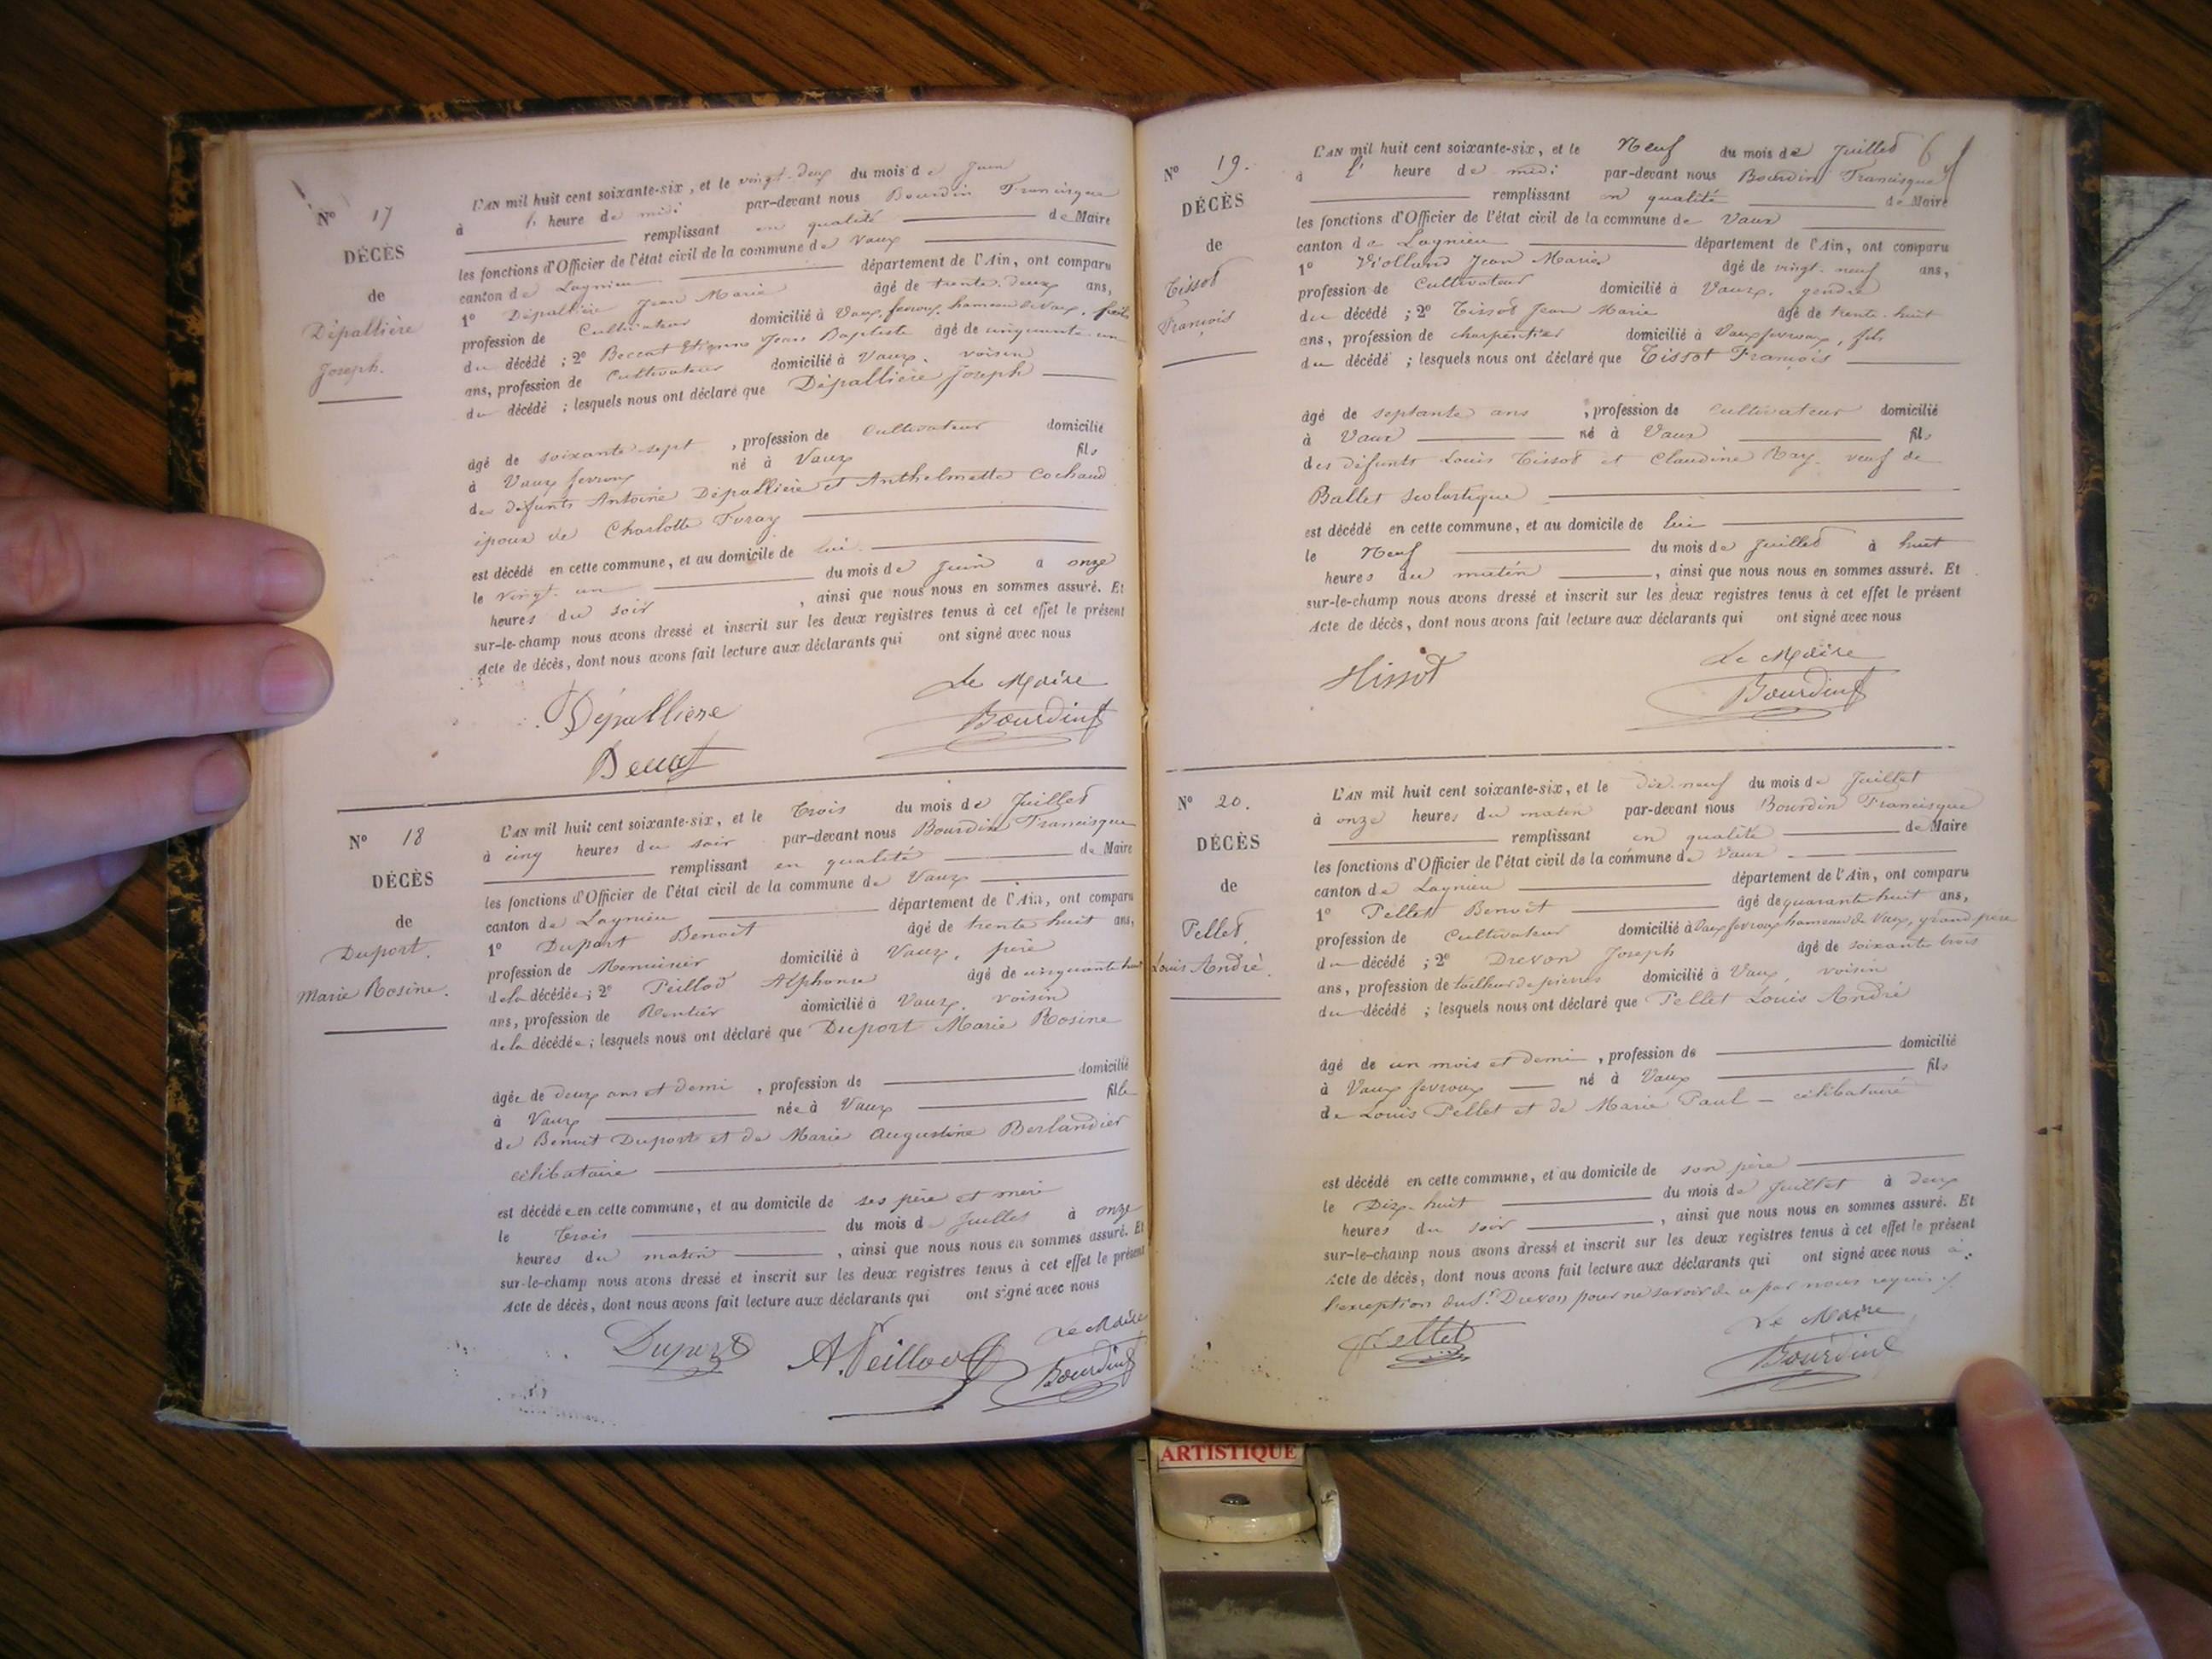 N° 17
DÉCÈS
de
Dépallière
Joseph.
L'AN mil huit cent soixante-six, et le vingt-deux du mois de Juin
à 1' heure de midi par-devant nous Bourdin Francisque
remplissant en qualité de Maire
les fonctions d'Officier de l'état civil de la commune de Vaux
canton de Lagnieu département de l'Ain, ont comparu
1° Dépallière Jean Marie âgé de trente-deux ans,
profession de Cultivateur domicilié à Vaux fevroux, hameau de Vaux, fils
du décédé ; 2° Beccat Etienne Jean Baptiste âgé de cinquante-un
ans, profession de Cultivateur domicilié à Vaux, voisin
du décédé ; lesquels nous ont déclaré que Dépallière Joseph
âgé de soixante-sept, profession de Cultivateur domicilié
à Vaux fevroux né à Vaux fils
des défunts Antoine Dépallière et Anthelmette Cochaud
époux de Charlotte Furay
est décédé en cette commune, et au domicile de lui
le vingt-un du mois de Juin à onze
heures du soir, ainsi que nous nous en sommes assuré. Et
sur-le-champ nous avons dressé et inscrit sur les deux registres tenus à cet effet le présent
Acte de décès, dont nous avons fait lecture aux déclarants qui ont signé avec nous
Le Maire
Dépalliere
Bourdin f
Beccat
N° 18
DÉCÈS
de
Duport.
Marie Rosine.
L'AN mil huit cent soixante-six, et le Trois du mois de Juillet
à cinq heures du soir par-devant nous Bourdin Francisque
remplissant en qualité de Maire
les fonctions d'Officier de l'état civil de la commune de Vaux
canton de Lagnieu département de l'Ain, ont comparu
1° Duport Benoit âgé de trente huit ans,
profession de Menuisier domicilié à Vaux, père
de la décédée ; 2° Peillod Alphonse âgé de cinquante
ans, profession de Rentier domicilié à Vaux, voisin
de la décédée ; lesquels nous ont déclaré que Duport Marie Rosine
âgée de deux ans et demi, profession de domicilié
à Vaux née à Vaux fille
de Benoit Duport et de Marie Augustine Berlandier
célibataire
est décédée en cette commune, et au domicile de ses père et mère
le Trois du mois de Juillet à onze
heures du matin, ainsi que nous nous en sommes assuré. Et
sur-le-champ nous avons dressé et inscrit sur les deux registres tenus à cet effet le présent
Acte de décès, dont nous avons fait lecture aux déclarants qui ont signé avec nous
Le Maire
Duport A. Peillod Bourdin f
N° 19.
DÉCÈS
de
Tissot
François
L'AN mil huit cent soixante-six, et le Neuf du mois de Juillet 6
à 1' heure de midi par-devant nous Bourdin Francisque
remplissant en qualité de Maire
les fonctions d'Officier de l'état civil de la commune de Vaux
canton de Lagnieu département de l'Ain, ont comparu
1° Violland Jean Marie âgé de vingt-neuf ans,
profession de Cultivateur domicilié à Vaux, gendre
du décédé ; 2° Tissot Jean Marie âgé de trente-huit
ans, profession de charpentier domicilié à Vaux fevroux, fils
du décédé ; lesquels nous ont déclaré que Tissot François
âgé de septante ans, profession de Cultivateur domicilié
à Vaux né à Vaux fils
des défunts Louis Tissot et Claudine Ray. veuf de
Ballet Scolastique
est décédé en cette commune, et au domicile de lui
le Neuf du mois de Juillet à huit
heures du matin, ainsi que nous nous en sommes assuré. Et
sur-le-champ nous avons dressé et inscrit sur les deux registres tenus à cet effet le présent
Acte de décès, dont nous avons fait lecture aux déclarants qui ont signé avec nous
Le Maire
Tissot
Bourdin f
N° 20.
DÉCÈS
de
Pellet,
Louis André.
L'AN mil huit cent soixante-six, et le dix-neuf du mois de Juillet
à onze heures du matin par-devant nous Bourdin Francisque
remplissant en qualité de Maire
les fonctions d'Officier de l'état civil de la commune de Vaux
canton de Lagnieu département de l'Ain, ont comparu
1° Pellet Benoît âgé de quarante huit ans,
profession de Cultivateur domicilié à Vaux fevroux hameau de Vaux, grand père
du décédé ; 2° Drevon Joseph âgé de soixante-trois
ans, profession de tailleur de pierres domicilié à Vaux, voisin
du décédé ; lesquels nous ont déclaré que Pellet Louis André
âgé de un mois et demi, profession de domicilié
à Vaux fevroux né à Vaux fils
de Louis Pellet et de Marie Paul - célibataire
est décédé en cette commune, et au domicile de son père
le Dix-huit du mois de Juillet à deux
heures du soir, ainsi que nous nous en sommes assuré. Et
sur-le-champ nous avons dressé et inscrit sur les deux registres tenus à cet effet le présent
Acte de décès, dont nous avons fait lecture aux déclarants qui ont signé avec nous à
l'exception du Sr. Drevon pour ne savoir de ce par nous requis
Le Maire
Pellet
Bourdin f
ARTISTIQUE